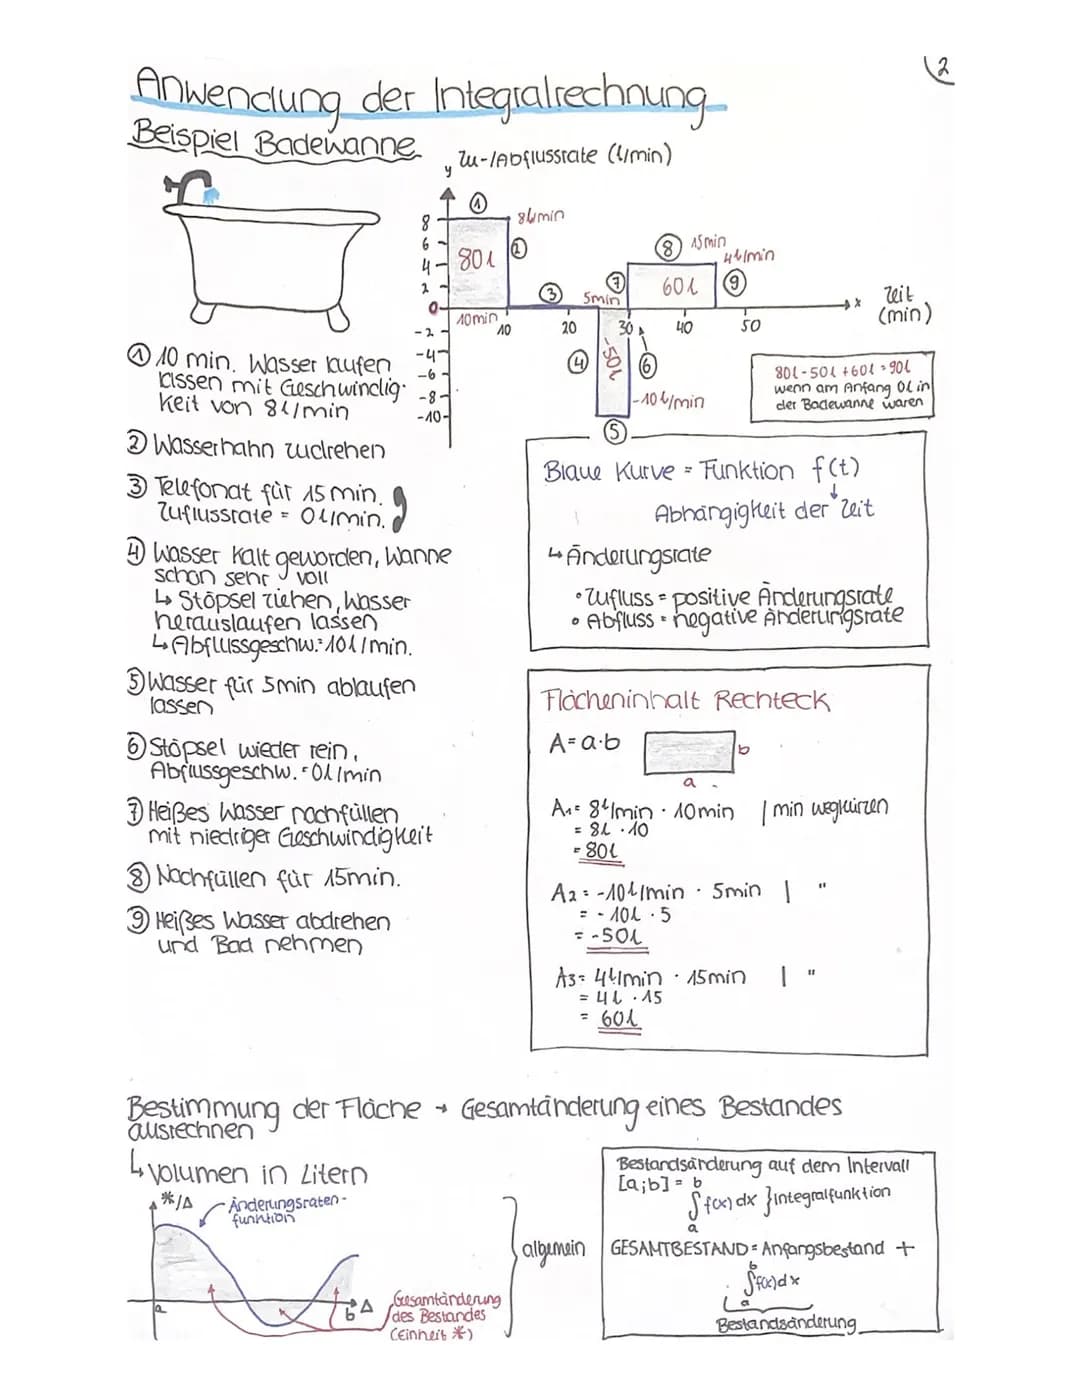 2
Anwendung der Integralrechnung
Beispiel Badewanne
y Zu-/Abflussrate (l/min)
① 8l/min
8
6
4
2
0
-2
-4
-6
-8
-10
80l ②
10min
③ 5min ⑦
⑧ 15min
4l/min
60l ⑨
x Zeit
(min)
10 20 30 40 50
④ -50l ⑥
-10l/min
⑤
80l-50l+60l=90l
wenn am Anfang 0l in
der Badewanne waren
① 10 min. Wasser laufen
lassen mit Geschwindig-
keit von 8l/min
② Wasserhahn zudrehen
③ Telefonat für 15 min.
Zuflussrate = 0l/min.
④ Wasser kalt geworden, Wanne
schon sehr voll
↳ Stöpsel ziehen, Wasser
herauslaufen lassen
↳ Abflussgeschw.: 10l/min.
⑤ Wasser für 5min ablaufen
lassen
⑥ Stöpsel wieder rein,
Abflussgeschw. = 0l/min
⑦ Heißes Wasser nachfüllen
mit niedriger Geschwindigkeit
⑧ Nachfüllen für 15min.
⑨ Heißes Wasser abdrehen
und Bad nehmen
Blaue Kurve = Funktion f(t)
↓
Abhängigkeit der Zeit
↳ Änderungsrate
• Zufluss = positive Änderungsrate
• Abfluss = negative Änderungsrate
Flächeninhalt Rechteck
A=a·b b
a
A₁= 8l/min · 10min | min wegkürzen
= 8l · 10
= 80l
A₂= -10l/min · 5min | "
= -10l · 5
= -50l
A₃= 4l/min · 15min | "
= 4l · 15
= 60l
Bestimmung der Fläche → Gesamtänderung eines Bestandes
ausrechnen
↳ Volumen in Litern
*/Δ Änderungsraten-
funktion
a b Δ
Gesamtänderung
des Bestandes
(Einheit *)
} allgemein
Bestandsänderung auf dem Intervall
[a;b] = b
∫ f(x) dx } Integralfunktion
a
GESAMTBESTAND = Anfangsbestand +
b
∫ f(x) dx
a
Bestandsänderung